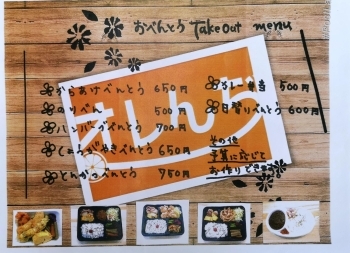 おべんとう Take out menu
からあげべんとう 650円
のりべん 500円
ハンバーグべんとう 700円
しょうがやきべんとう 650円
とんかつべんとう 750円
カレー弁当 500円
日替りべんとう 600円
その他
予算に応じて
お作りできます